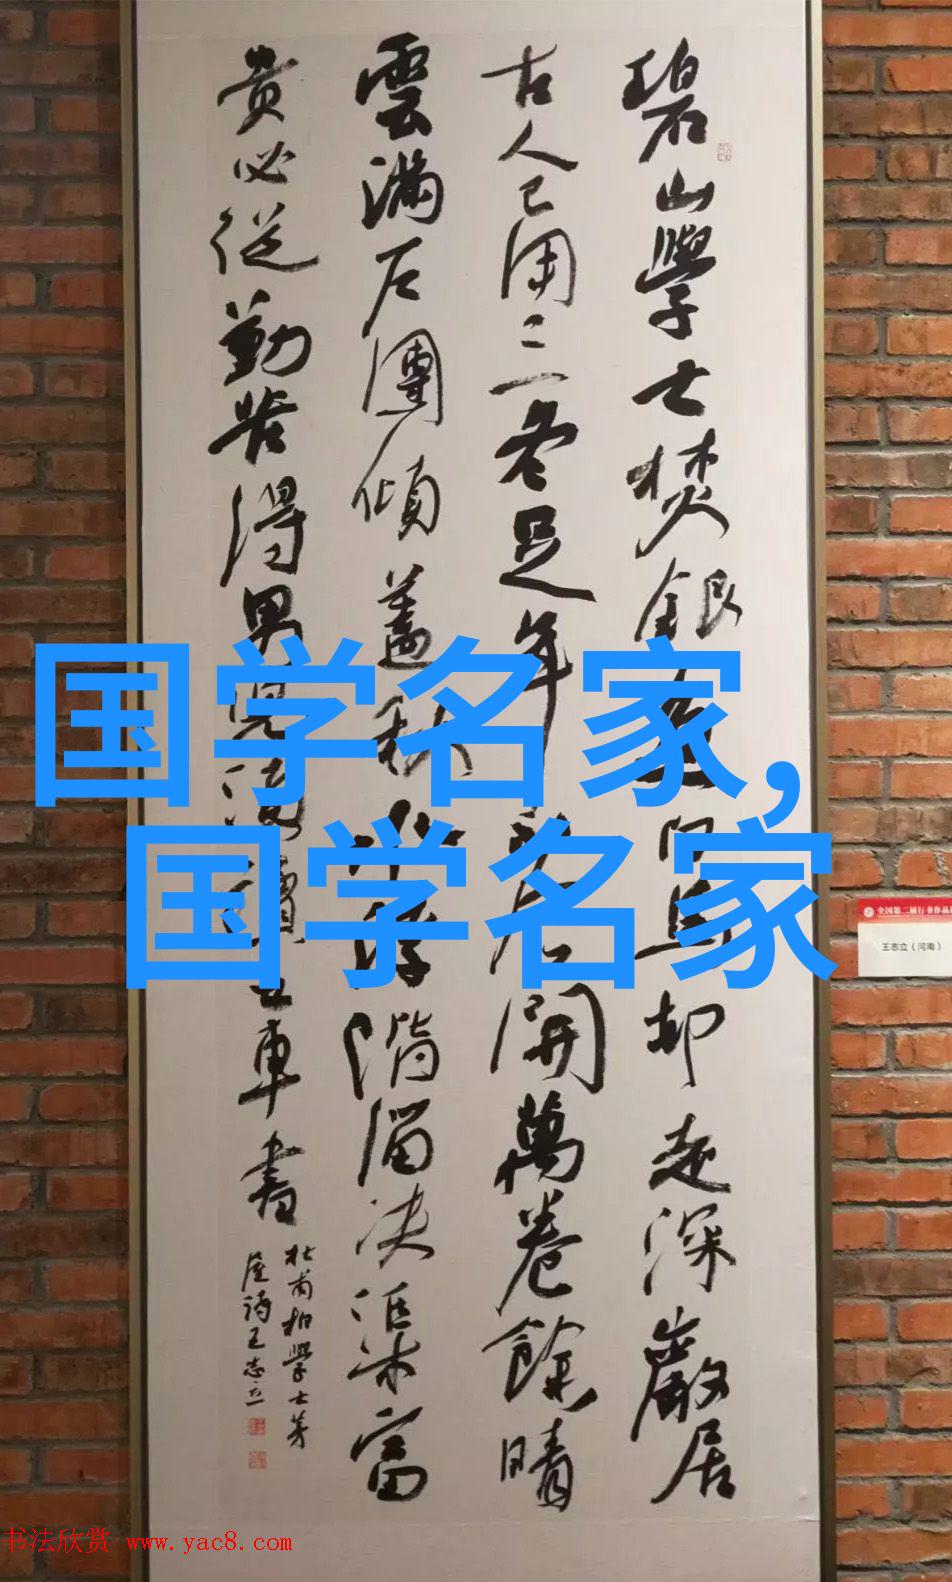 碧山學士焚銀魚白馬却走深巖居
古人已用三冬足年開萬卷餘晴
雲滿戶團傾蓋秋水浮階溜決渠富
貴必從勤苦得男兒須讀五車書
杜甫柏學士茅
屋詩王志立
国学名家,
国学名家
全国第二届行书作品
王志立(河南)
书法欣赏 www.yac8.com